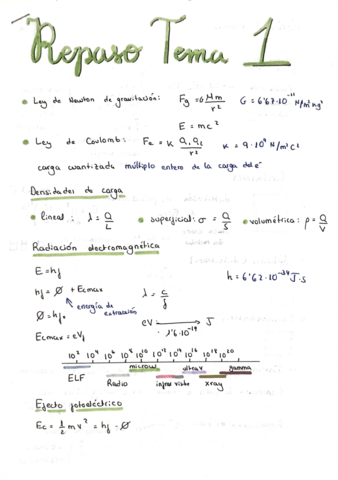 Repaso Tema 1
• Ley de Newton de gravitación: Fg = G Mm/r² G = 6'67·10⁻¹¹ N/m²kg²
E = mc²
• Ley de Coulomb: Fe = K Q₁Q₂/r² K = 9·10⁹ N/m²C²
carga cuantizada múltiplo entero de la carga del e⁻
Densidades de carga
• lineal: λ = Q/L • superficial: σ = Q/S • volumétrica: ρ = Q/V
Radiación electromagnética
E = hf h = 6'62·10⁻³⁴ J·s
hf = Ø + Ecmax λ = c/f
energía de extracción
Ø = hf₀
eV → J
1'6·10⁻¹⁹
Ecmax = eV
10² 10⁴ 10⁶ 10⁸ 10¹⁰ 10¹² 10¹⁴ 10¹⁶ 10¹⁸ 10²⁰
microw ultrav gamma
ELF Radio infra visto xray
Efecto fotoeléctrico
Ec = 1/2 m v² = hf - Ø